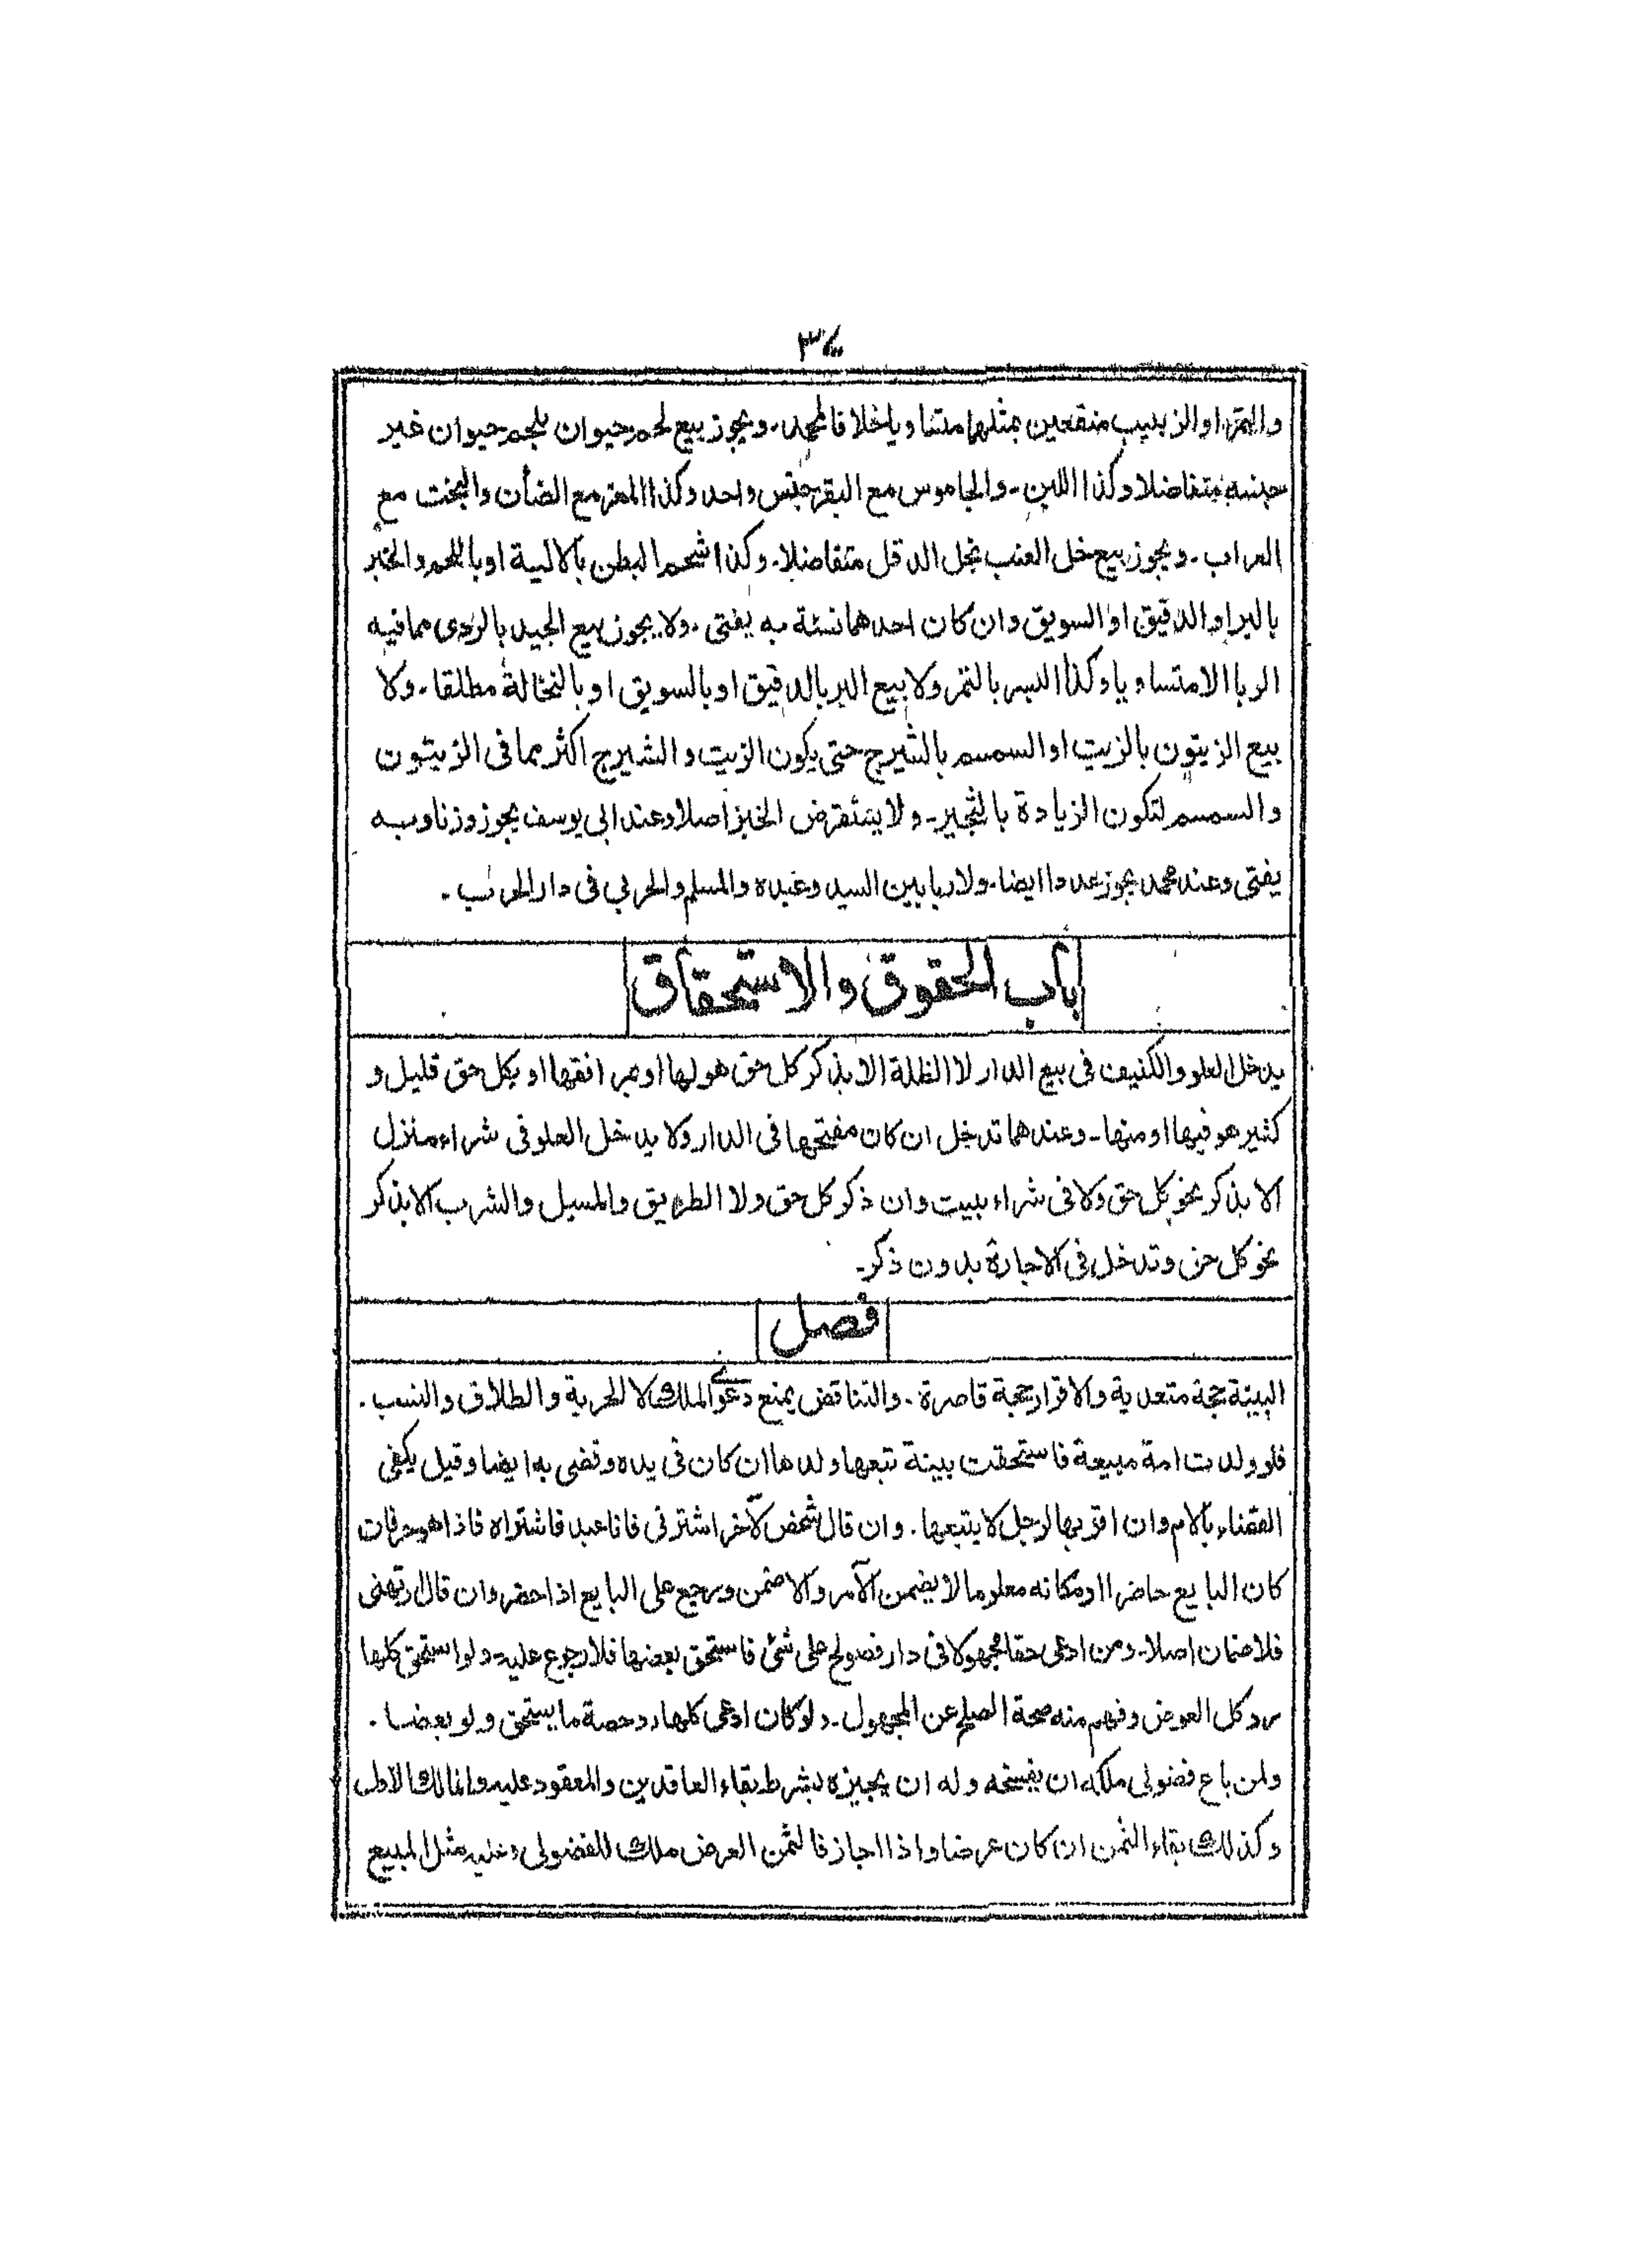 والتمر او الزبيب منقعين بمثلهما متساويا خلافا لمحمد۔ ويجوز بيع لحم حيوان بلحم حيوان غير
جنسه متفاضلا وكذا اللبن۔ والجاموس مع البقر جنس واحد وكذا المعز مع الضأن والبخت مع
العراب۔ ويجوز بيع خل العنب بخل الدقل متفاضلا۔ وكذا شحم البطن بالالية او باللحم والخبز
بالبر او الدقيق او السويق وان كان احدهما نسئة به يفتى۔ ولا يجوز بيع الجيد بالردى مما فيه
الربا الا متساويا وكذا البسر بالتمر ولا بيع البر بالدقيق او بالسويق او بالنخالة مطلقا۔ ولا
بيع الزيتون بالزيت او السمسم بالشيرج حتى يكون الزيت والشيرج اكثر مما فى الزيتون
والسمسم لتكون الزيادة بالثجير۔ ولا يستقرض الخبز اصلا وعند ابى يوسف يجوز وزنا وبه
يفتى وعند محمد يجوز عددا ايضا۔ ولا ربا بين السيد وعبده والمسلم والحربي فى دار الحرب۔
باب الحقوق والاستحقاق
يدخل العلو والكنيف فى بيع الدار لا الظلة الا بذكر كل حق هو لها او مرافقها او بكل حق قليل و
كثير هو فيها او منها۔ وعندهما تدخل ان كان مفتحها فى الدار ولا يدخل العلو فى شراء منزل
الا بذكر نحو كل حق ولا فى شراء بيت وان ذكر كل حق ولا الطريق والمسيل والشرب الا بذكر
نحو كل حق وتدخل فى الاجارة بدون ذكر۔
فصل
البينة حجة متعدية والاقرار حجة قاصرة۔ والتناقض يمنع دعوى الملك لا الحرية والطلاق والنسب۔
فلو ولدت امة مبيعة فاستحقت ببينة تبعها ولدها ان كان فى يده وقضى به ايضا وقيل يكفى
القضاء بالام وان اقر بها لرجل لا يتبعها۔ وان قال شخص لآخر اشترنى فانا عبد فاشتراه فاذا هو حر فان
كان البايع حاضرا او مكانه معلوما لا يضمن الآمر والا ضمن ورجع على البايع اذا حضر وان قال ارتهنى
فلا ضمان اصلا۔ ومن ادعى حقا مجهولا فى دار فصولح على شئ فاستحق بعضها فلا رجوع عليه۔ ولو استحق كلها
رد كل العوض وفهم منه صحة الصلح عن المجهول۔ ولو كان ادعى كلها رد حصة ما يستحق ولو بعضا۔
ولمن باع فضولى ملكه ان يفسخه وله ان يجيزه بشرط بقاء العاقدين والمعقود عليه والمالك الاول
وكذلك بقاء الثمن ان كان عرضا واذا اجاز فالثمن العرض ملك للفضولى وعليه مثل المبيع